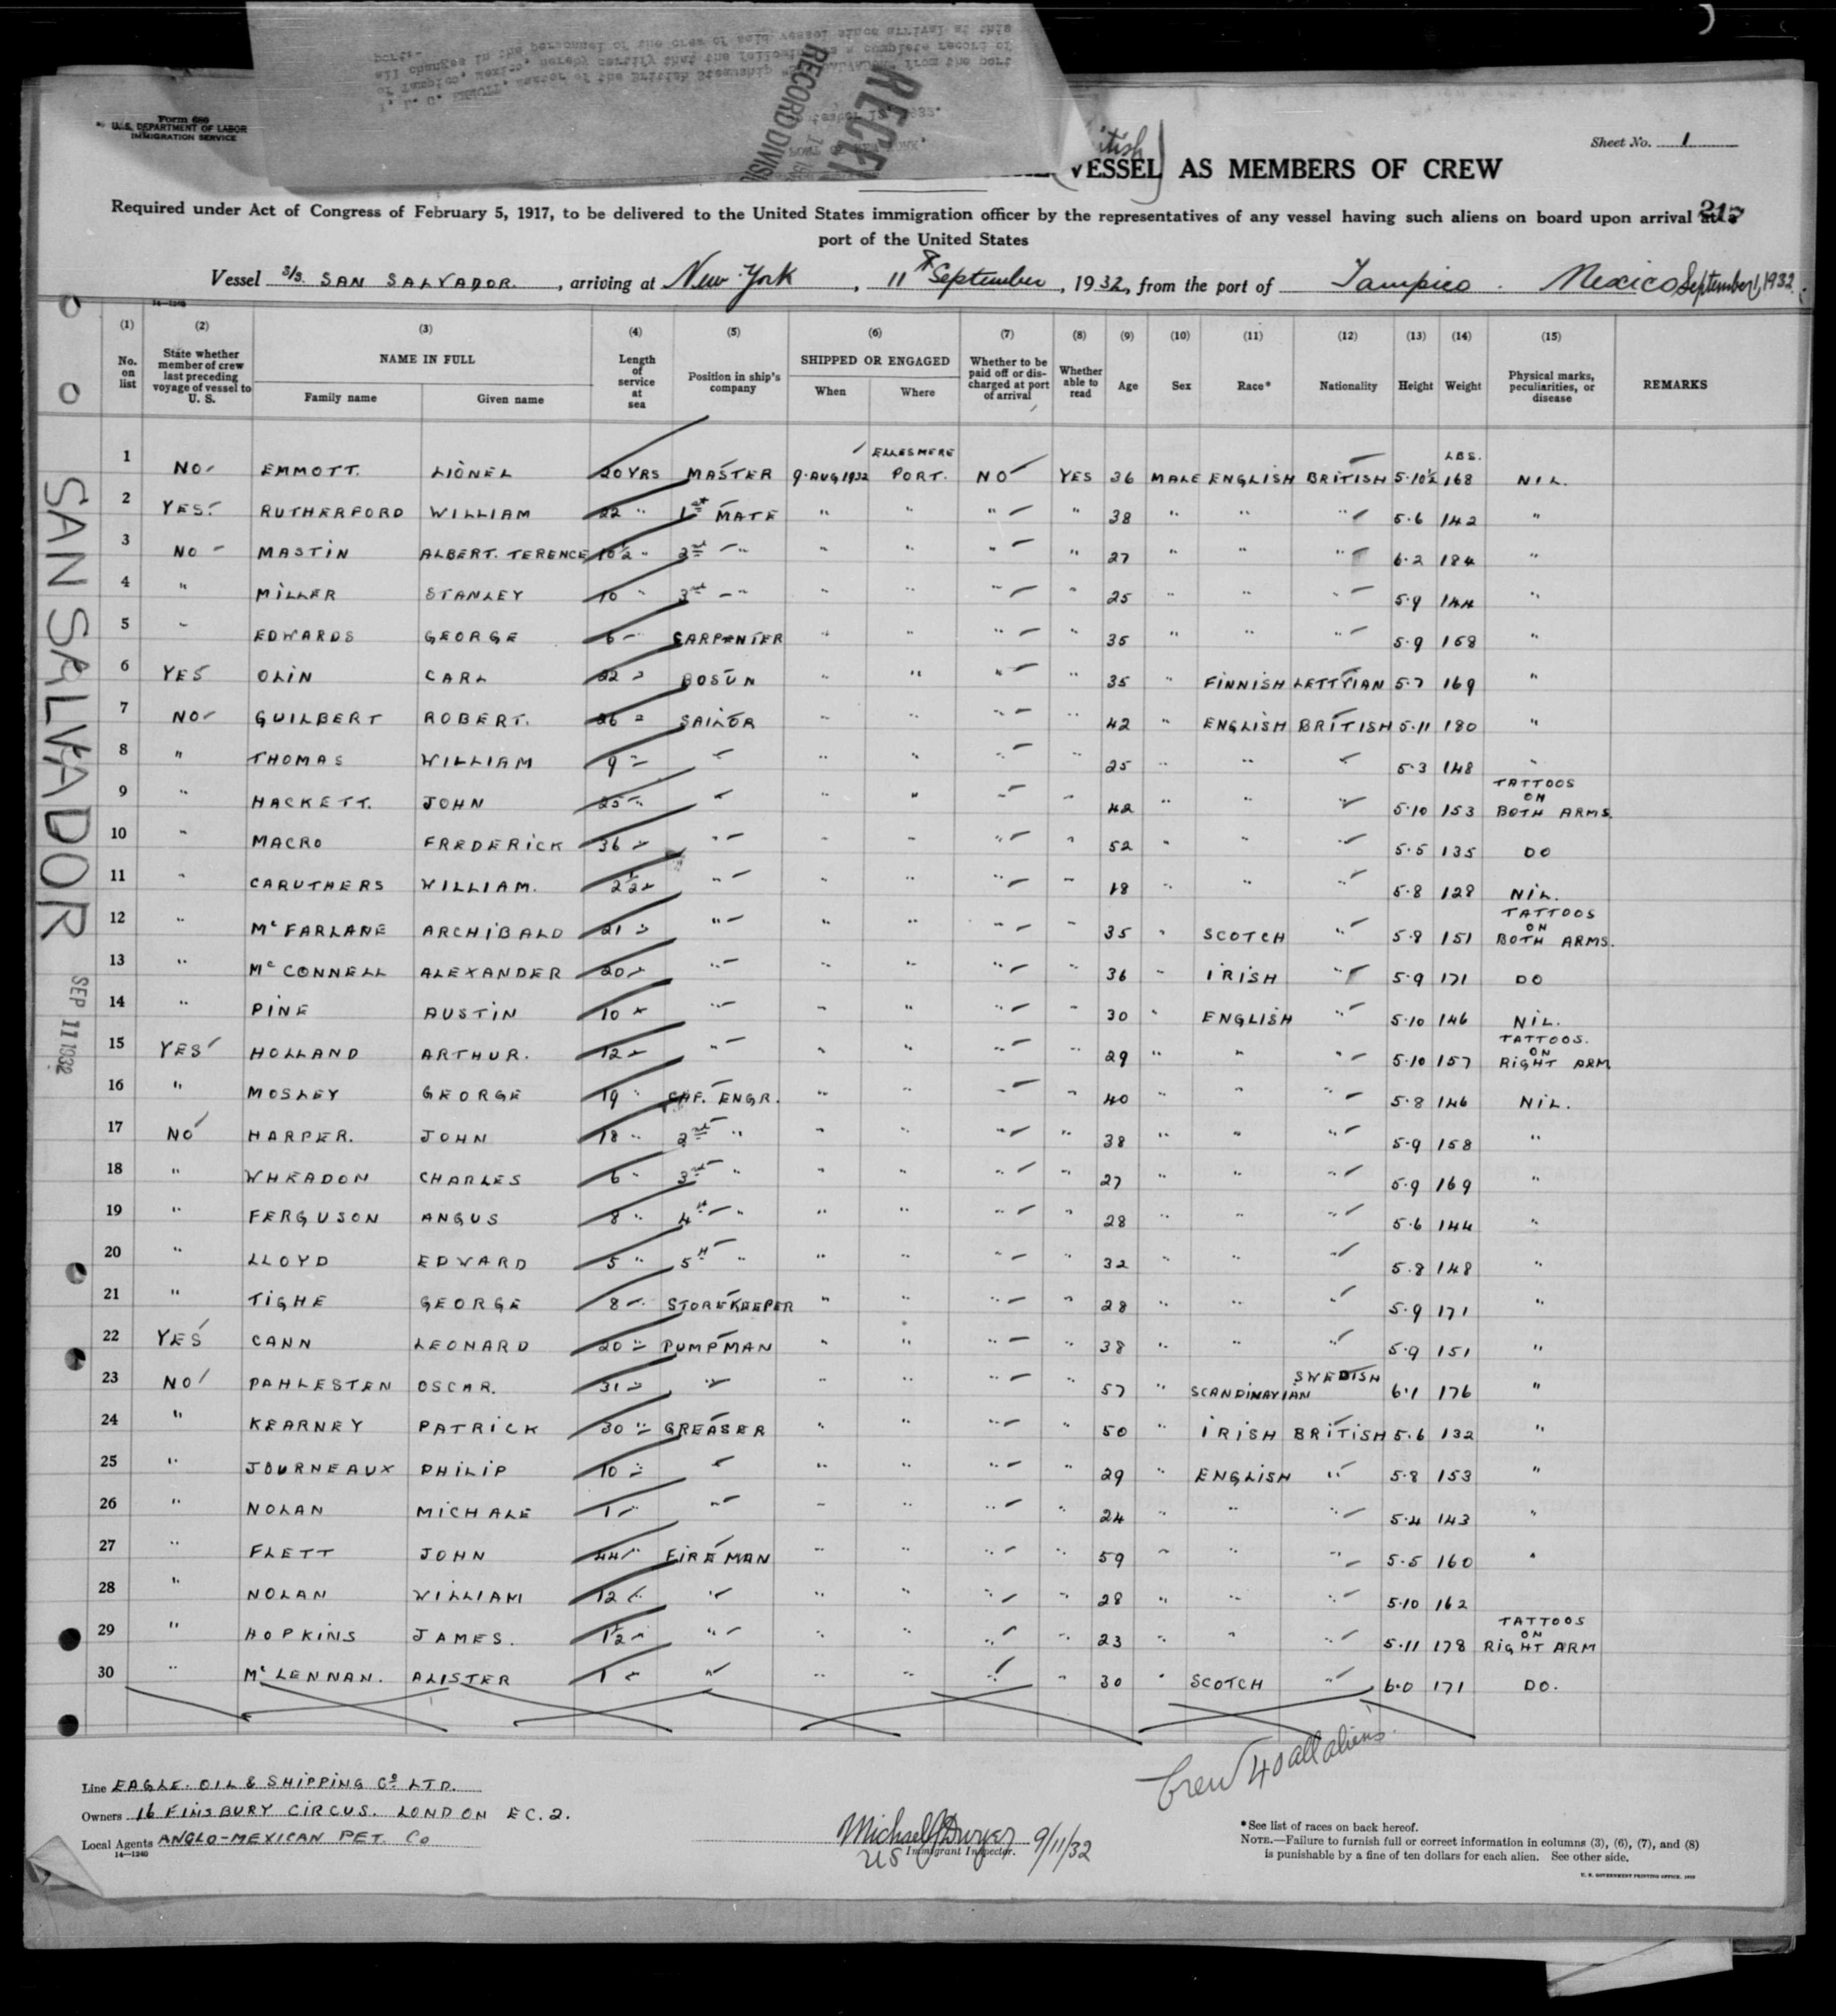 Form 680
U. S. DEPARTMENT OF LABOR
IMMIGRATION SERVICE
RECORD DIVISI
Sheet No. 1
VESSEL AS MEMBERS OF CREW
Required under Act of Congress of February 5, 1917, to be delivered to the United States immigration officer by the representatives of any vessel having such aliens on board upon arrival at a
217
port of the United States
Vessel S/S. SAN SALVADOR. , arriving at New York , 11th September , 1932, from the port of Tampico . Mexico September 1, 1932.
14—1240
(1) (2) (3) (4) (5) (6) (7) (8) (9) (10) (11) (12) (13) (14) (15)
No. on list | State whether member of crew last preceding voyage of vessel to U. S. | NAME IN FULL | Family name | Given name | Length of service at sea | Position in ship's company | SHIPPED OR ENGAGED | When | Where | Whether to be paid off or discharged at port of arrival | Whether able to read | Age | Sex | Race* | Nationality | Height | Weight | Physical marks, peculiarities, or disease | REMARKS
1 NO EMMOTT. LIONEL 20 YRS MASTER 9·AUG 1932 ELLESMERE PORT. NO YES 36 MALE ENGLISH BRITISH 5·10½ LBS. 168 NIL.
2 YES. RUTHERFORD WILLIAM 22 " 1st MATE " " " " 38 " " " 5·6 142 "
3 NO MASTIN ALBERT. TERENCE 10½ " 2nd " " " " " 27 " " " 6·2 184 "
4 " MILLER STANLEY 10 " 3rd " " " " " 25 " " " 5·9 144 "
5 " EDWARDS GEORGE 6 " CARPENTER " " " " 35 " " " 5·9 158 "
6 YES OLIN CARL 22 " BOSUN " " " " 35 " FINNISH LETTVIAN 5·7 169 "
7 NO GUILBERT ROBERT. 26 " SAILOR " " " " 42 " ENGLISH BRITISH 5·11 180 "
8 " THOMAS WILLIAM 9 " " " " " " 25 " " " 5·3 148 "
9 " HACKETT. JOHN 25 " " " " " " 42 " " " 5·10 153 TATTOOS ON BOTH ARMS.
10 " MACRO FREDERICK 36 " " " " " " 52 " " " 5·5 135 DO
11 " CARUTHERS WILLIAM. 2½ " " " " " " 18 " " " 5·8 128 NIL.
12 " McFARLANE ARCHIBALD 21 " " " " " " 35 " SCOTCH " 5·8 151 TATTOOS ON BOTH ARMS.
13 " McCONNELL ALEXANDER 20 " " " " " " 36 " IRISH " 5·9 171 DO
14 " PINE AUSTIN 10 " " " " " " 30 " ENGLISH " 5·10 146 NIL.
15 YES HOLLAND ARTHUR. 12 " " " " " " 29 " " " 5·10 157 TATTOOS. ON RIGHT ARM
16 " MOSLEY GEORGE 19 " CHF. ENGR. " " " " 40 " " " 5·8 146 NIL.
17 NO HARPER. JOHN 18 " 2nd " " " " " 38 " " " 5·9 158 "
18 " WHEADON CHARLES 6 " 3rd " " " " " 27 " " " 5·9 169 "
19 " FERGUSON ANGUS 8 " 4th " " " " " 28 " " " 5·6 144 "
20 " LLOYD EDWARD 5 " 5th " " " " " 32 " " " 5·8 148 "
21 " TIGHE GEORGE 8 " STOREKEEPER " " " " 28 " " " 5·9 171 "
22 YES CANN LEONARD 20 " PUMPMAN " " " " 38 " " " 5·9 151 "
23 NO PAHLESTEN OSCAR. 31 " " " " " " 57 " SCANDINAVIAN SWEDISH 6·1 176 "
24 " KEARNEY PATRICK 30 " GREASER " " " " 50 " IRISH BRITISH 5·6 132 "
25 " JOURNEAUX PHILIP 10 " " " " " " 29 " ENGLISH " 5·8 153 "
26 " NOLAN MICHALE 1 " " " " " " 24 " " " 5·4 143 "
27 " FLETT JOHN 44 " FIREMAN " " " " 59 " " " 5·5 160 "
28 " NOLAN WILLIAM 12 " " " " " " 28 " " " 5·10 162
29 " HOPKINS JAMES. 1½ " " " " " " 23 " " " 5·11 178 TATTOOS ON RIGHT ARM
30 " McLENNAN. ALISTER 1 " " " " " " 30 " SCOTCH " 6·0 171 DO.
SAN SALVADOR
SEP 11 1932
Crew 40 all aliens.
Line EAGLE. OIL & SHIPPING Co LTD.
Owners 16 FINSBURY CIRCUS. LONDON EC.2.
Local Agents ANGLO-MEXICAN PET. Co
14—1240
Michael J Dwyer 9/11/32
US Immigrant Inspector.
*See list of races on back hereof.
NOTE.—Failure to furnish full or correct information in columns (3), (6), (7), and (8)
is punishable by a fine of ten dollars for each alien. See other side.
U. S. GOVERNMENT PRINTING OFFICE.